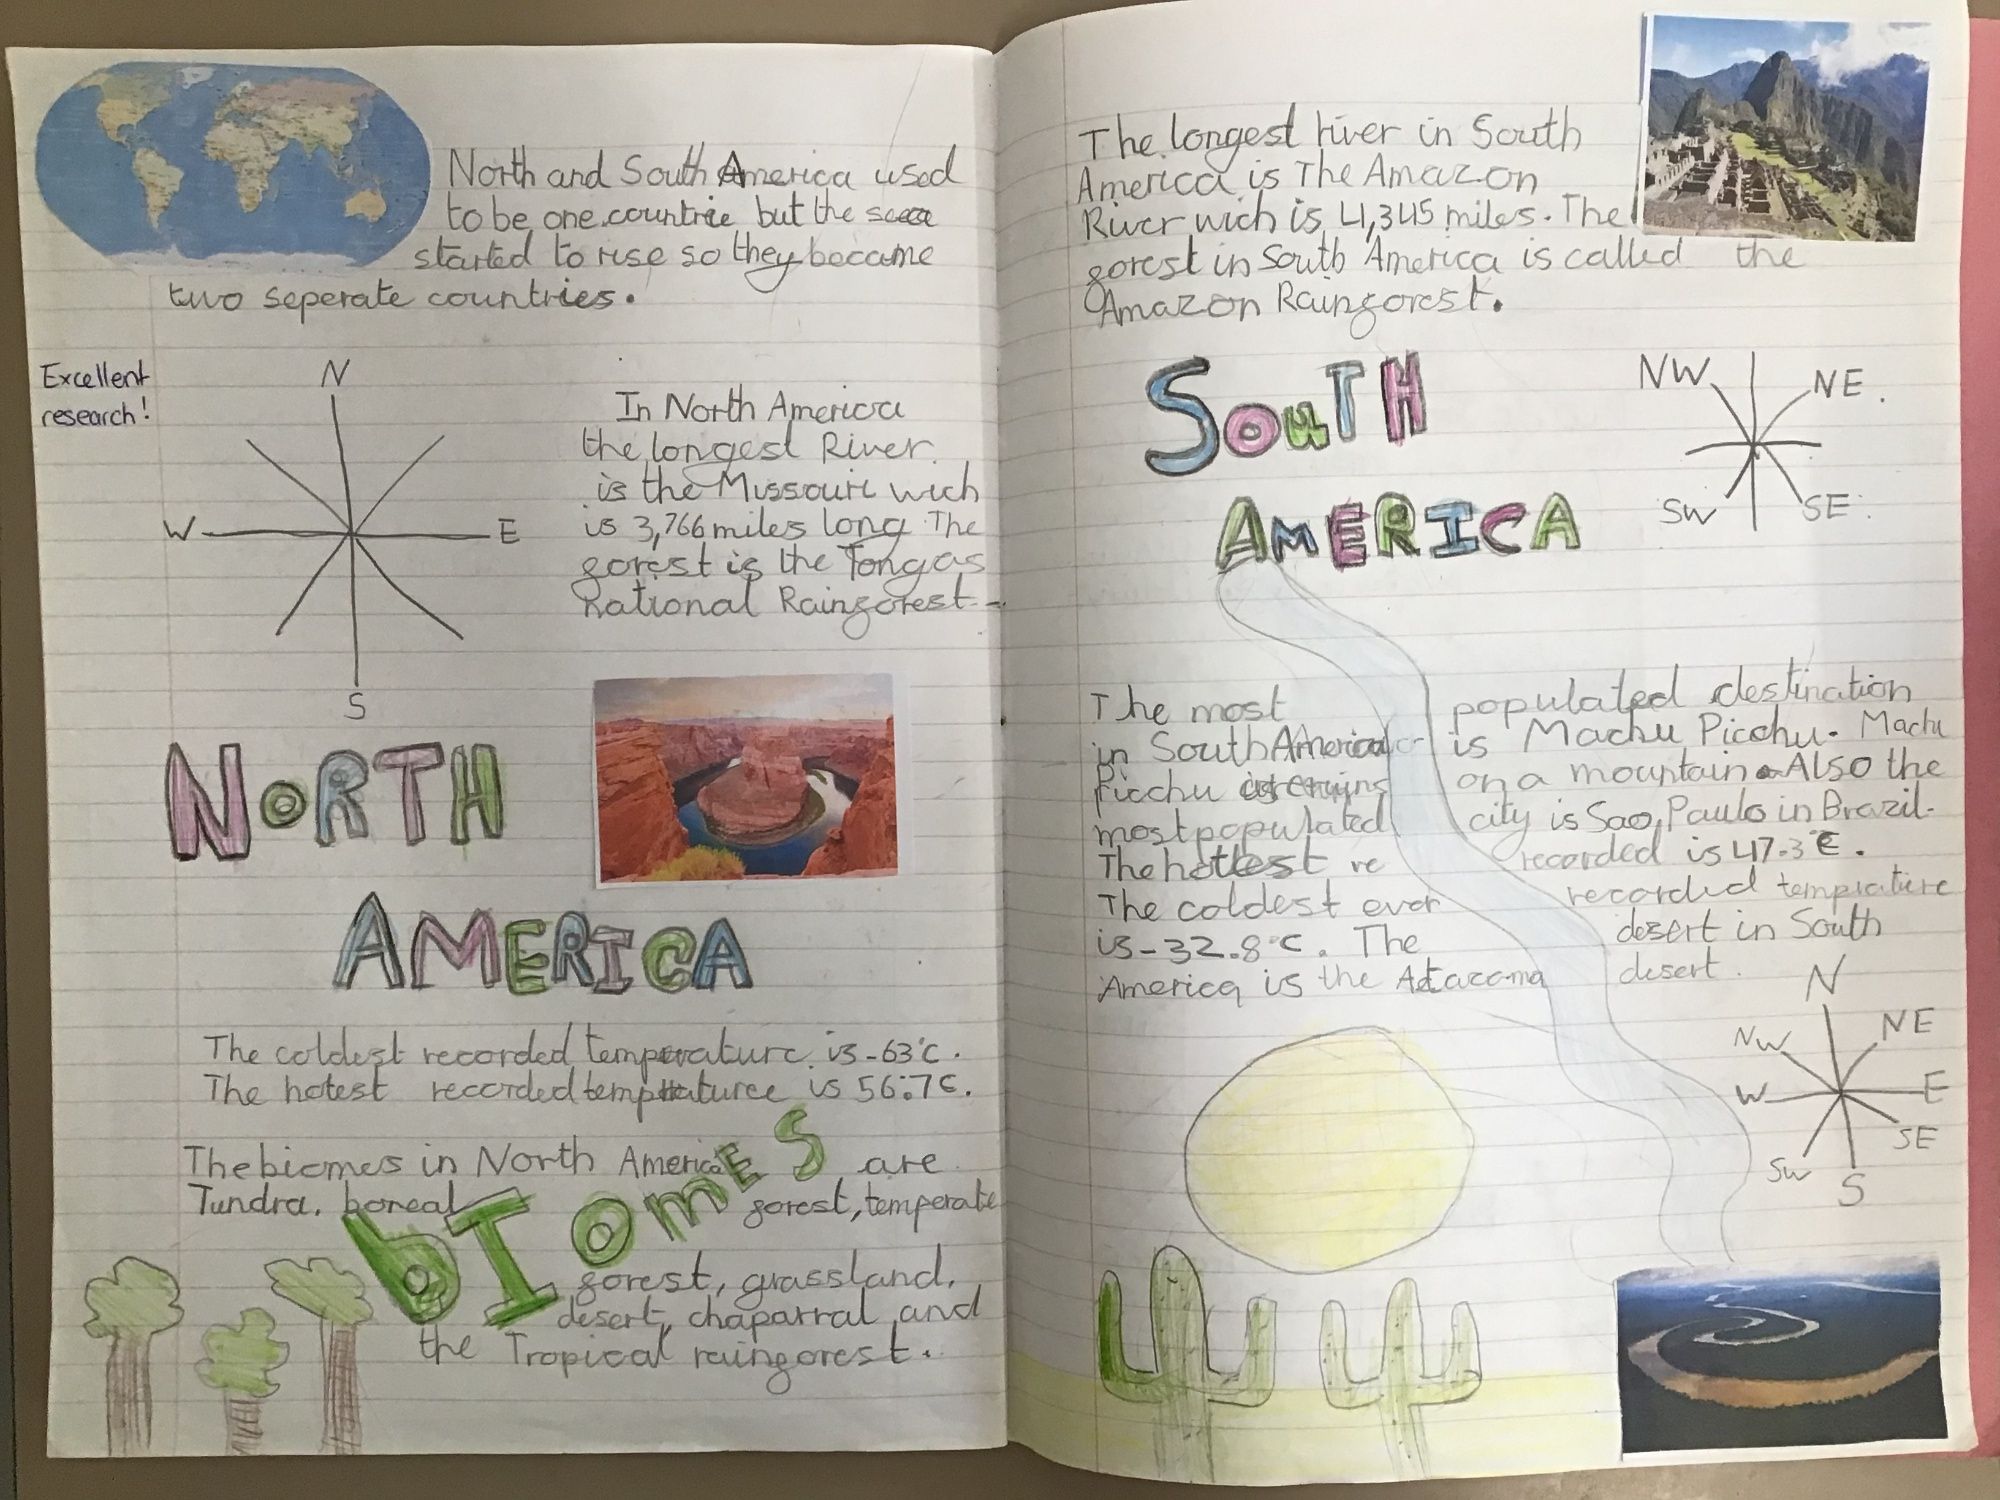 North and South America used
to be one countrie but the sea
started to rise so they became
two seperate countries.
Excellent
research!
N
W
E
S
In North America
the longest River
is the Missouri wich
is 3,766 miles long. The
forest is the Tongas
national Rainforest.
NORTH
AMERICA
The coldest recorded temperature is -63°C.
The hotest recorded temprature is 56.7C.
The biomes in North America are
Tundra, boreal forest, temperate
bIomES
forest, grassland,
desert, chaparral and
the Tropical rainforest.
The longest river in South
America is The Amazon
River wich is 4,345 miles. The
forest in South America is called the
Amazon Rainforest.
SouTH
AMERICA
NW
NE
SW
SE
The most populated destination
in South America is Machu Picchu. Machu
Picchu is ruins on a mountain. Also the
most populated city is Sao Paulo in Brazil.
The hottest re recorded is 47.3°C.
The coldest ever recorded temprature
is -32.8°C. The desert in South
America is the Atacama desert.
N
NW
NE
W
E
SW
SE
S